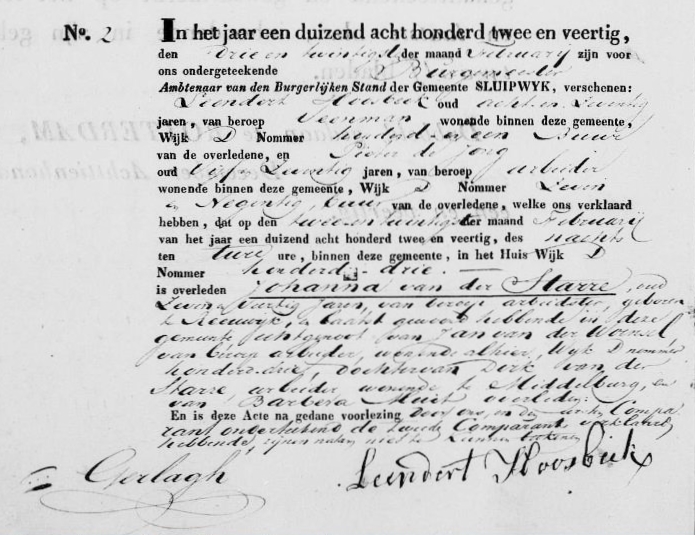 No. 2 In het jaar een duizend acht honderd twee en veertig,
den drie en twintigst der maand Februarij zijn voor
ons ondergeteekende Burgemeester
Ambtenaar van den Burgerlijken Stand der Gemeente SLUIPWYK, verschenen:
Leendert Hoosbeek oud acht en
jaren, van beroep Veenman wonende binnen deze gemeente,
Wijk D Nommer honderd en een Buur
van de overledene, en Pieter de Jong
oud vijf en jaren, van beroep arbeider
wonende binnen deze gemeente, Wijk D Nommer Zeven
en Negentig, buur van de overledene, welke ons verklaard
hebben, dat op den twee en twintigste der maand Februarij
van het jaar een duizend acht honderd twee en veertig, des nachts
ten twee ure, binnen deze gemeente, in het Huis Wijk D
Nommer honderd drie.
is overleden Johanna van der Starre, oud
Zeven en veertig Jaren, van beroep arbeidster, geboren
te Reeuwijk, laatst gewoond hebbende in deze
gemeente Echtgenoot van Jan van der
van beroep arbeider, wonende alhier, Wyk D nommer
honderd drie, dochter van Dirk van der
Starre arbeider wonende te Middelburg, en
van Barbera overleden.
En is deze Acte na gedane voorlezing door ons, en den eersten Compa-
rant onderteekend de tweede Comparant verklaard
hebbende, zijnen naam niet te kunnen teekenen
Gerlagh Leendert Hoosbeek